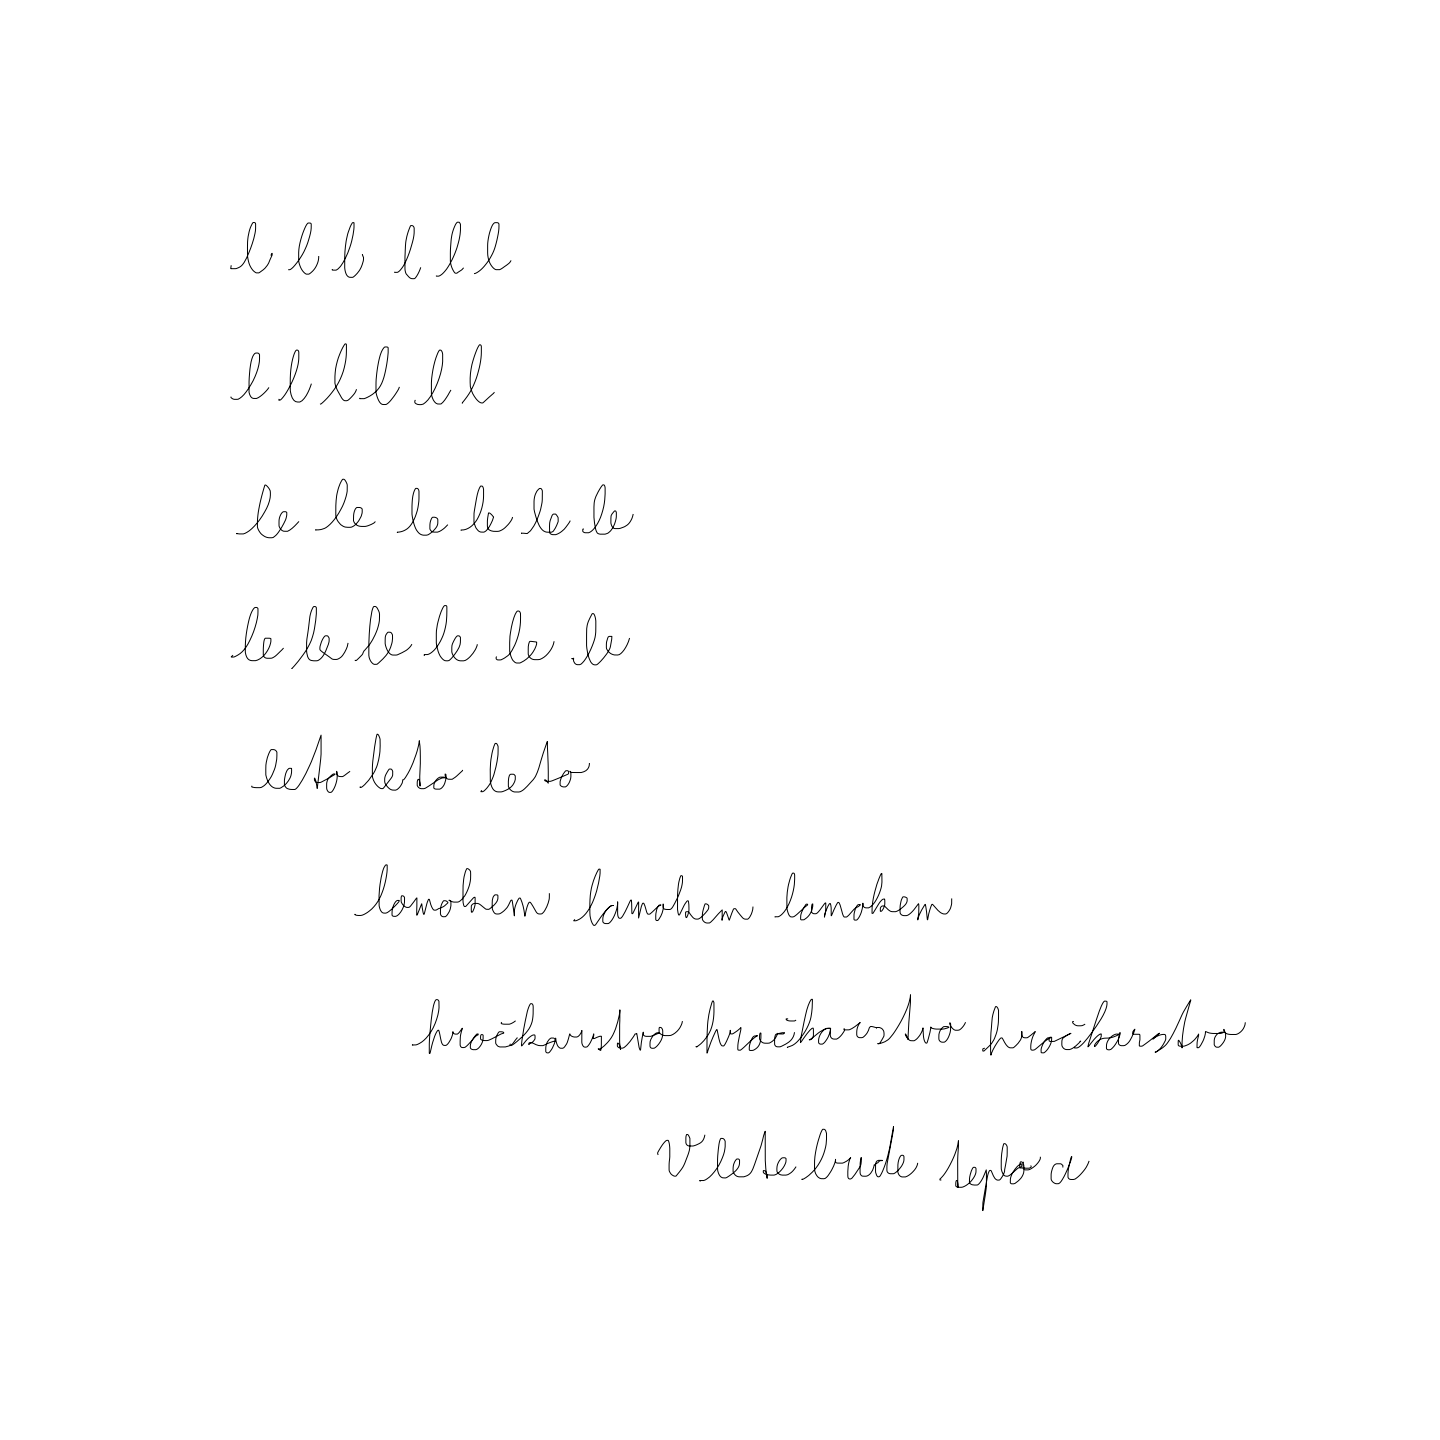 l l l l l l
l l l l l l
le le le le le le
le le le le le le
leto leto leto
lamoken lamoken lamoken
hračkarstvo hračkarstvo hračkarstvo
V lete bude teplo a